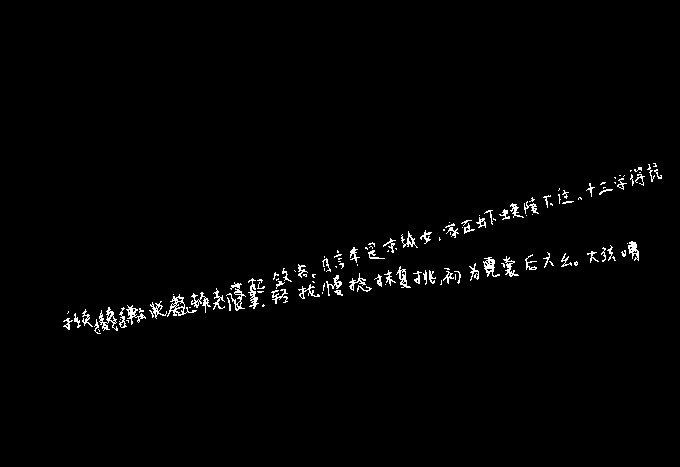 敛容。自言本是京城女,家在虾蟆陵下住。十三学得琵
手续 轻拢慢捻抹复挑,初为霓裳后六幺。大弦嘈